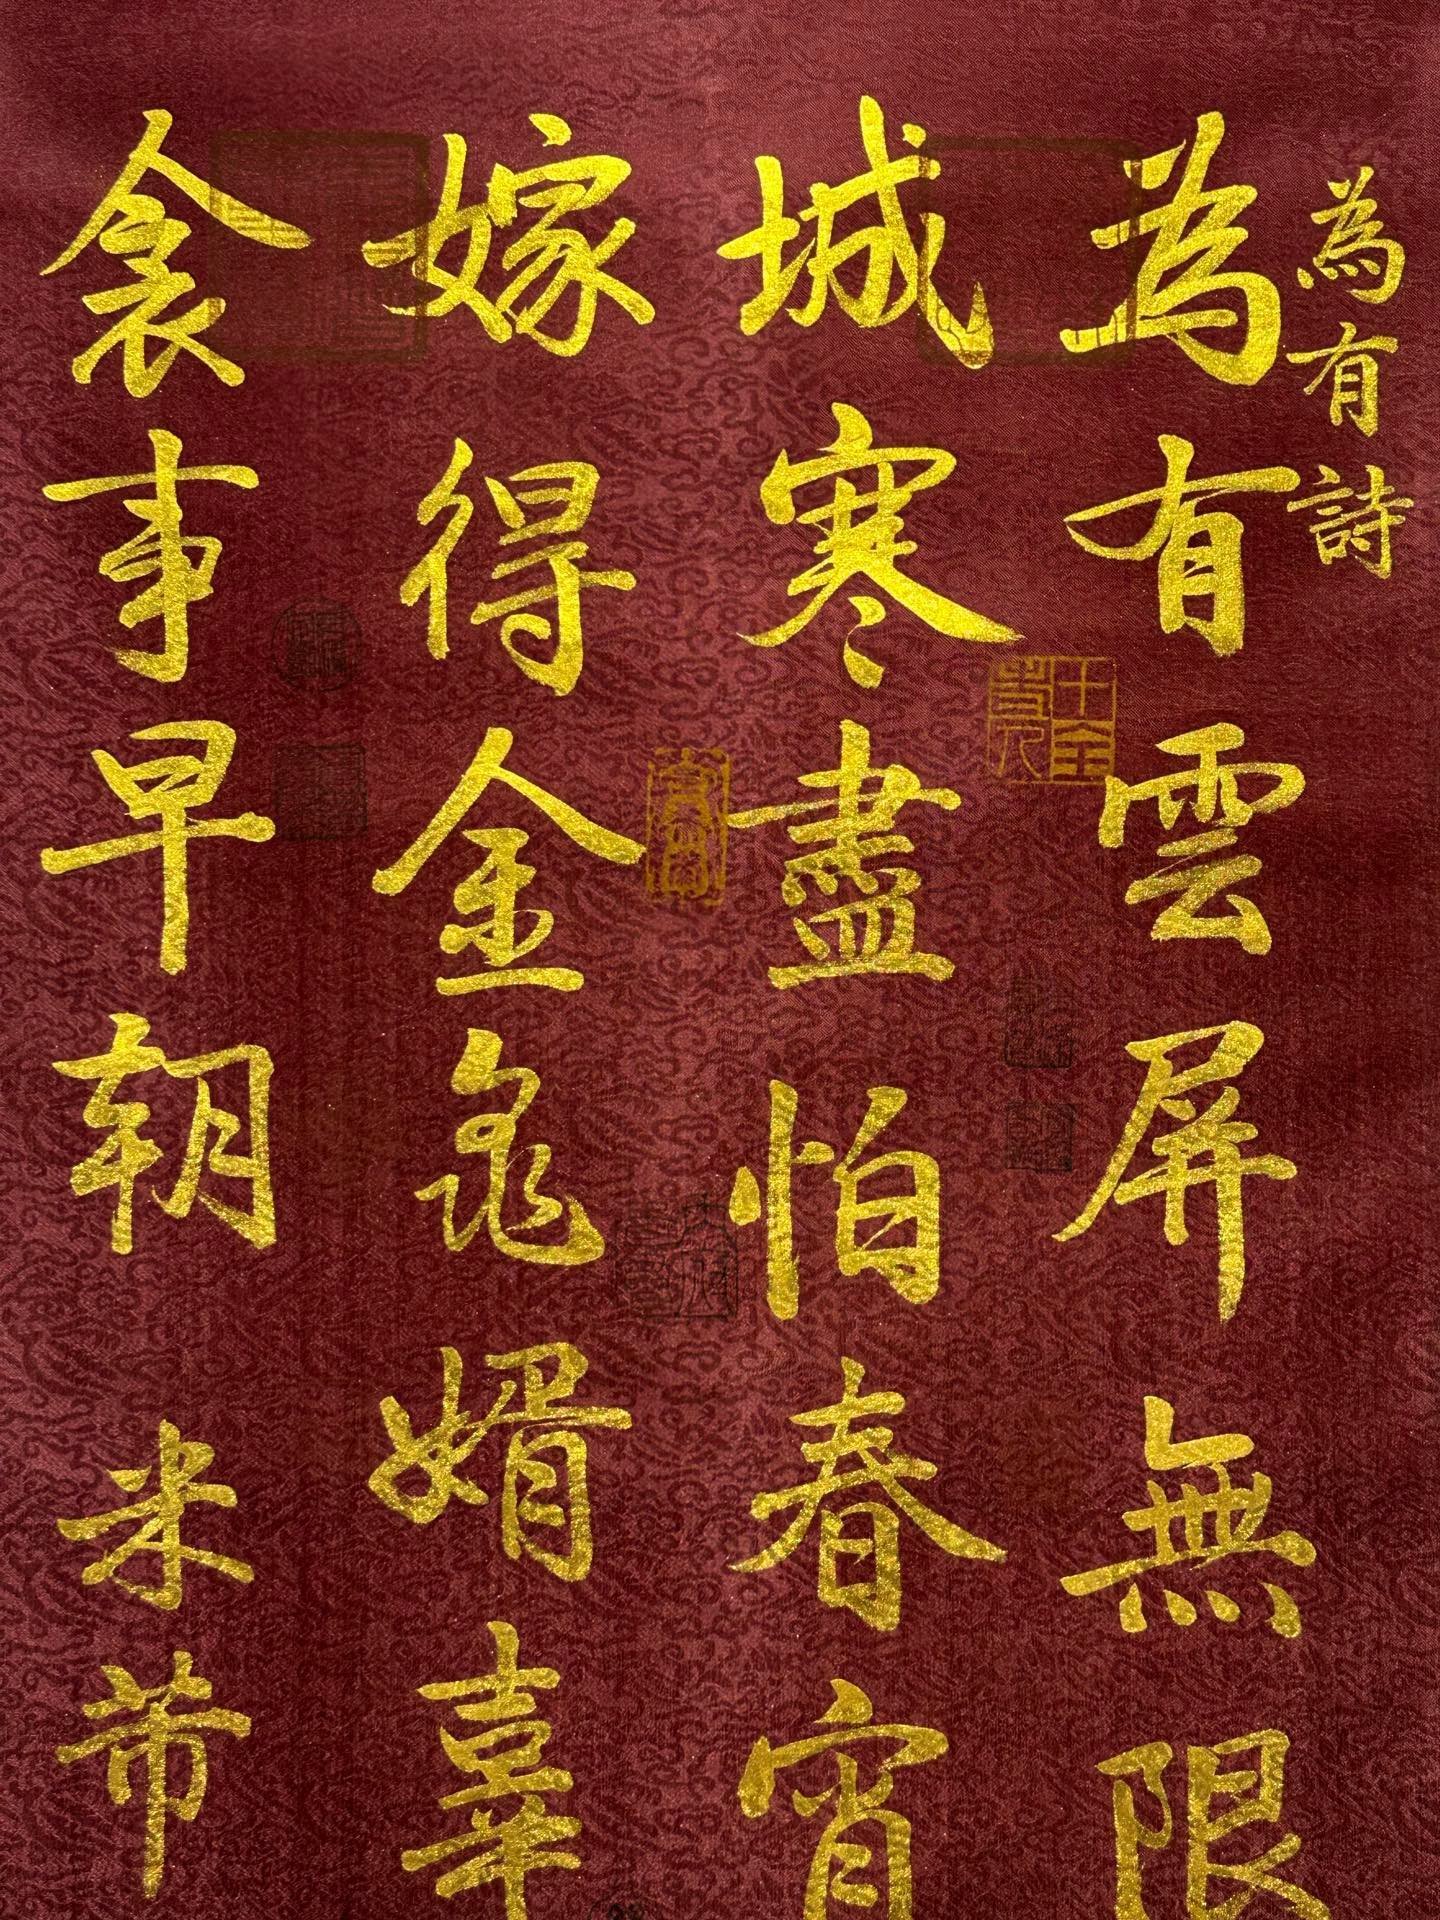 為有詩
為有雲屏無限
城寒盡怕春宵
嫁得金龜婿辜
衾事早朝 米芾